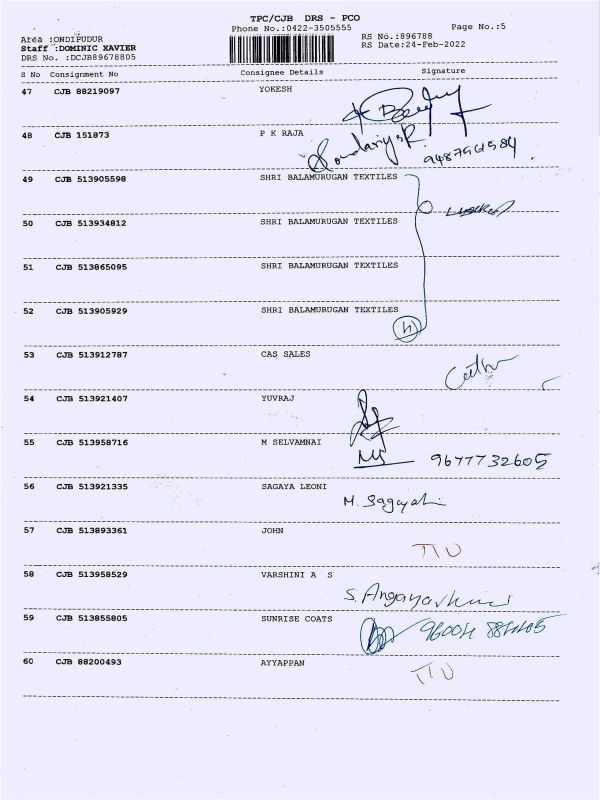 TPC/CJB DRS - PCO
Phone No.:0422-3505555
Page No.:5
Area :ONDIPUDUR
RS No.:896788
Staff :DOMINIC XAVIER
RS Date:24-Feb-2022
DRS No. :DCJB89678805
S No Consignment No Consignee Details Signature
47 CJB 88219097 YOKESH
48 CJB 151873 P K RAJA
9487961584
49 CJB 513905598 SHRI BALAMURUGAN TEXTILES
50 CJB 513934812 SHRI BALAMURUGAN TEXTILES
51 CJB 513865095 SHRI BALAMURUGAN TEXTILES
52 CJB 513905929 SHRI BALAMURUGAN TEXTILES
53 CJB 513912787 CAS SALES
54 CJB 513921407 YUVRAJ
55 CJB 513958716 M SELVAMNAI
9677732605
56 CJB 513921335 SAGAYA LEONI
M. Sagaya
57 CJB 513893361 JOHN
58 CJB 513958529 VARSHINI A S
59 CJB 513855805 SUNRISE COATS
60 CJB 88200493 AYYAPPAN